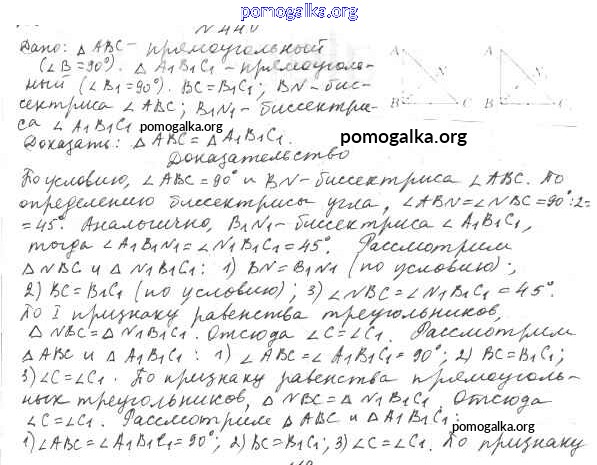 pomogalka.org
N 440
Дано: △ ABC - прямоугольный
(∠B=90°). △ A1B1C1 - прямоуголь-
ный (∠B1=90°). BC=B1C1; BN-бис-
сектриса ∠ABC; B1N1-биссектри-
са ∠ A1B1C1
pomogalka.org
Доказать: △ ABC = △ A1B1C1.
A
N
B
C
A
N
B
C
pomogalka.org
Доказательство
По условию, ∠ABC=90° и BN-биссектриса ∠ABC. По
определению биссектрисы угла, ∠ABN=∠NBC=90°:2=
=45°. Аналогично, B1N1-биссектриса ∠A1B1C1,
тогда ∠A1B1N1=∠N1B1C1=45°. Рассмотрим
△NBC и △ N1B1C1: 1) BN=B1N1 (по условию);
2) BC=B1C1 (по условию); 3) ∠NBC=∠N1B1C1=45°.
По I признаку равенства треугольников,
△ NBC=△ N1B1C1. Отсюда ∠C=∠C1. Рассмотрим
△ABC и △ A1B1C1: 1) ∠ABC=∠A1B1C1=90°; 2) BC=B1C1;
3) ∠C=∠C1. По признаку равенства прямоуголь-
ных треугольников, △ NBC = △ N1B1C1. Отсюда
∠C=∠C1. Рассмотрим △ABC и △A1B1C1:
pomogalka.org
1) ∠ABC=∠A1B1C1=90°; 2) BC=B1C1; 3) ∠C=∠C1. По признаку